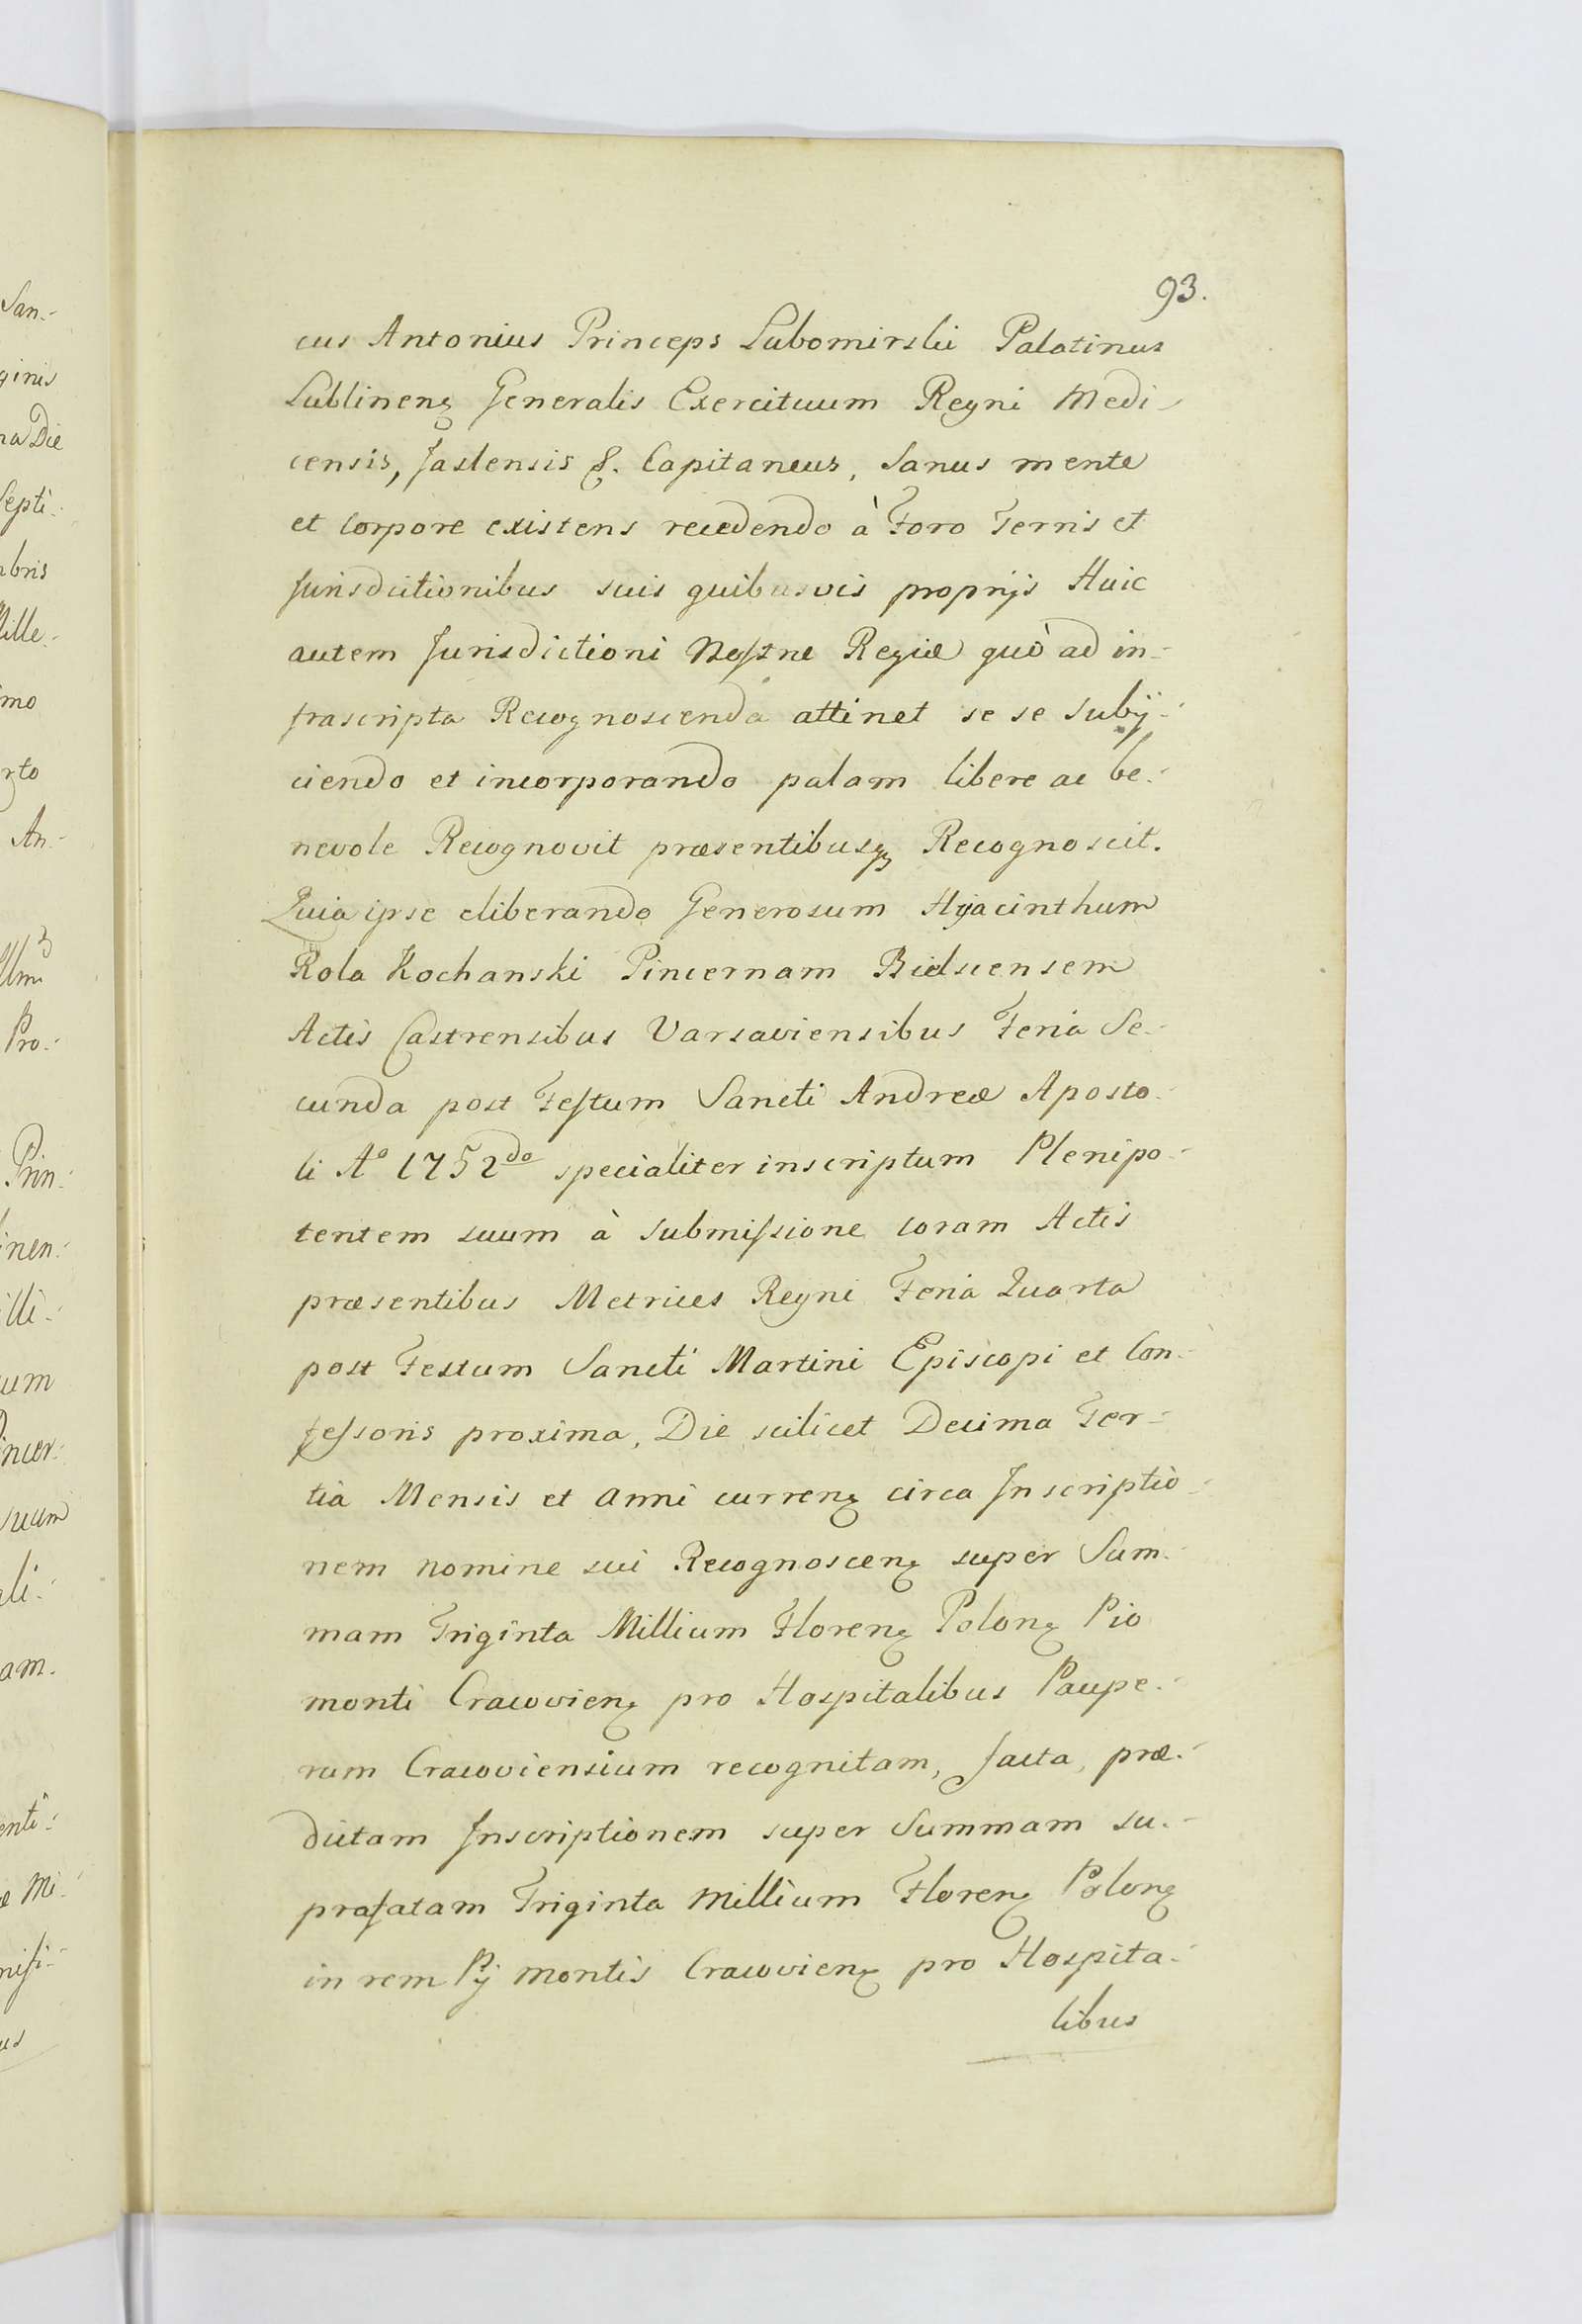 93.
cus Antonius Princeps Lubomirski Palatinus
Lublinenꝫ Generalis Exercituum Regni Medi-
censis, Jaslensis &. Capitaneus, Sanus mente
et Corpore existens recedendo à Foro Terris et
Jurisdictionibus suis quibusvis proprijs Huic
autem Jurisdictioni Nostræ Regiæ quò ad in-
frascripta Recognoscenda attinet se se subij-
ciendo et incorporando palam libere ac be-
nevole Recognovit præsentibusqꝫ Recognoscit.
Quia ipse eliberando Generosum Hyacinthum
Rola Kochanski Pincernam Bielscensem
Actis Castrensibus Varsaviensibus Feria Se-
cunda post Festum Sancti Andreæ Aposto-
li Aº 1752do specialiter inscriptum Plenipo-
tentem suum à submissione coram Actis
præsentibus Metrices Regni Feria Quarta
post Festum Sancti Martini Episcopi et Con-
fessoris proxima, Die scilicet Decima Ter-
tia Mensis et Anni currenꝫ circa Inscriptio-
nem nomine sui Recognoscenꝫ super Sum-
mam Triginta Millium Florenꝫ Polonꝫ Pio
monti Cracovienꝫ pro Hospitalibus Paupe-
rum Cracoviensium recognitam, facta, præ-
dictam Inscriptionem super Summam su-
prafatam Triginta Millium Florenꝫ Polonꝫ
in rem Pij montis Cracovienꝫ pro Hospita-
libus